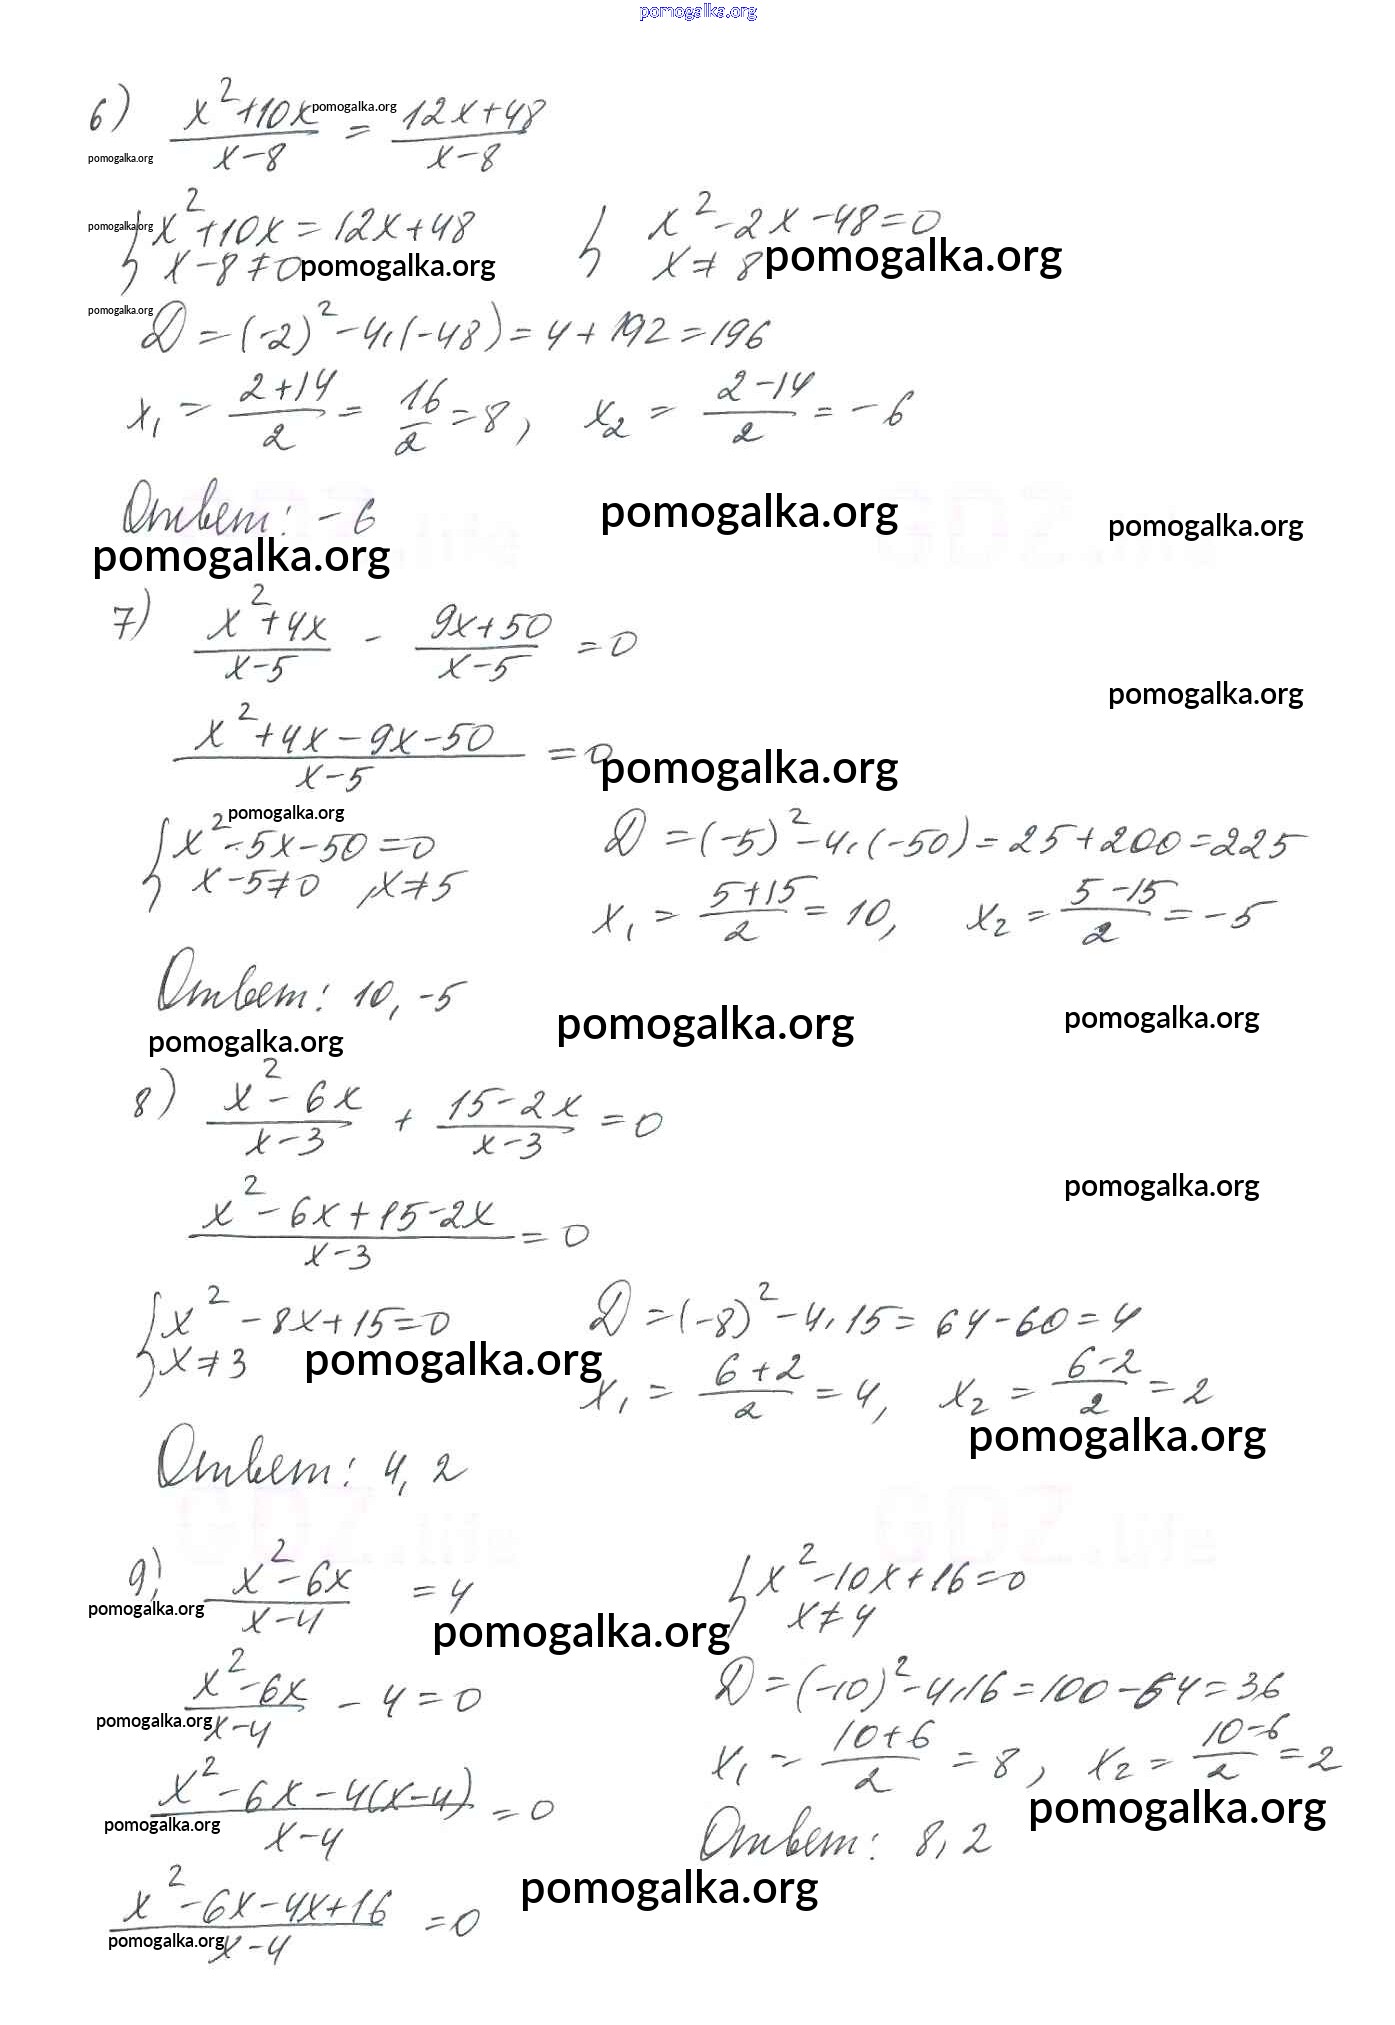 pomogalka.org
6) (x²+10x)/(x-8) = (12x+48)/(x-8)
pomogalka.org
pomogalka.org
{ x²+10x=12x+48 { x²-2x-48=0
pomogalka.org
x-8≠0 x≠8
pomogalka.org pomogalka.org
pomogalka.org
D=(-2)²-4·(-48)=4+192=196
x₁ = (2+14)/2 = 16/2 = 8, x₂ = (2-14)/2 = -6
Ответ: -6
pomogalka.org pomogalka.org
pomogalka.org
7) (x²+4x)/(x-5) - (9x+50)/(x-5) = 0
pomogalka.org
(x²+4x-9x-50)/(x-5) = 0
pomogalka.org
pomogalka.org
{ x²-5x-50=0 D=(-5)²-4·(-50)=25+200=225
x-5≠0, x≠5 x₁ = (5+15)/2 = 10, x₂ = (5-15)/2 = -5
Ответ: 10, -5
pomogalka.org pomogalka.org
pomogalka.org
8) (x²-6x)/(x-3) + (15-2x)/(x-3) = 0
pomogalka.org
(x²-6x+15-2x)/(x-3) = 0
{ x²-8x+15=0 D=(-8)²-4·15=64-60=4
x≠3 x₁ = (6+2)/2 = 4, x₂ = (6-2)/2 = 2
pomogalka.org
pomogalka.org
Ответ: 4, 2
GDZ.life GDZ.life
9) (x²-6x)/(x-4) = 4 { x²-10x+16=0
pomogalka.org
x≠4
pomogalka.org
(x²-6x)/(x-4) - 4 = 0 D=(-10)²-4·16=100-64=36
pomogalka.org
x₁ = (10+6)/2 = 8, x₂ = (10-6)/2 = 2
(x²-6x-4(x-4))/(x-4) = 0
pomogalka.org
pomogalka.org
Ответ: 8, 2
pomogalka.org
(x²-6x-4x+16)/(x-4) = 0
pomogalka.org